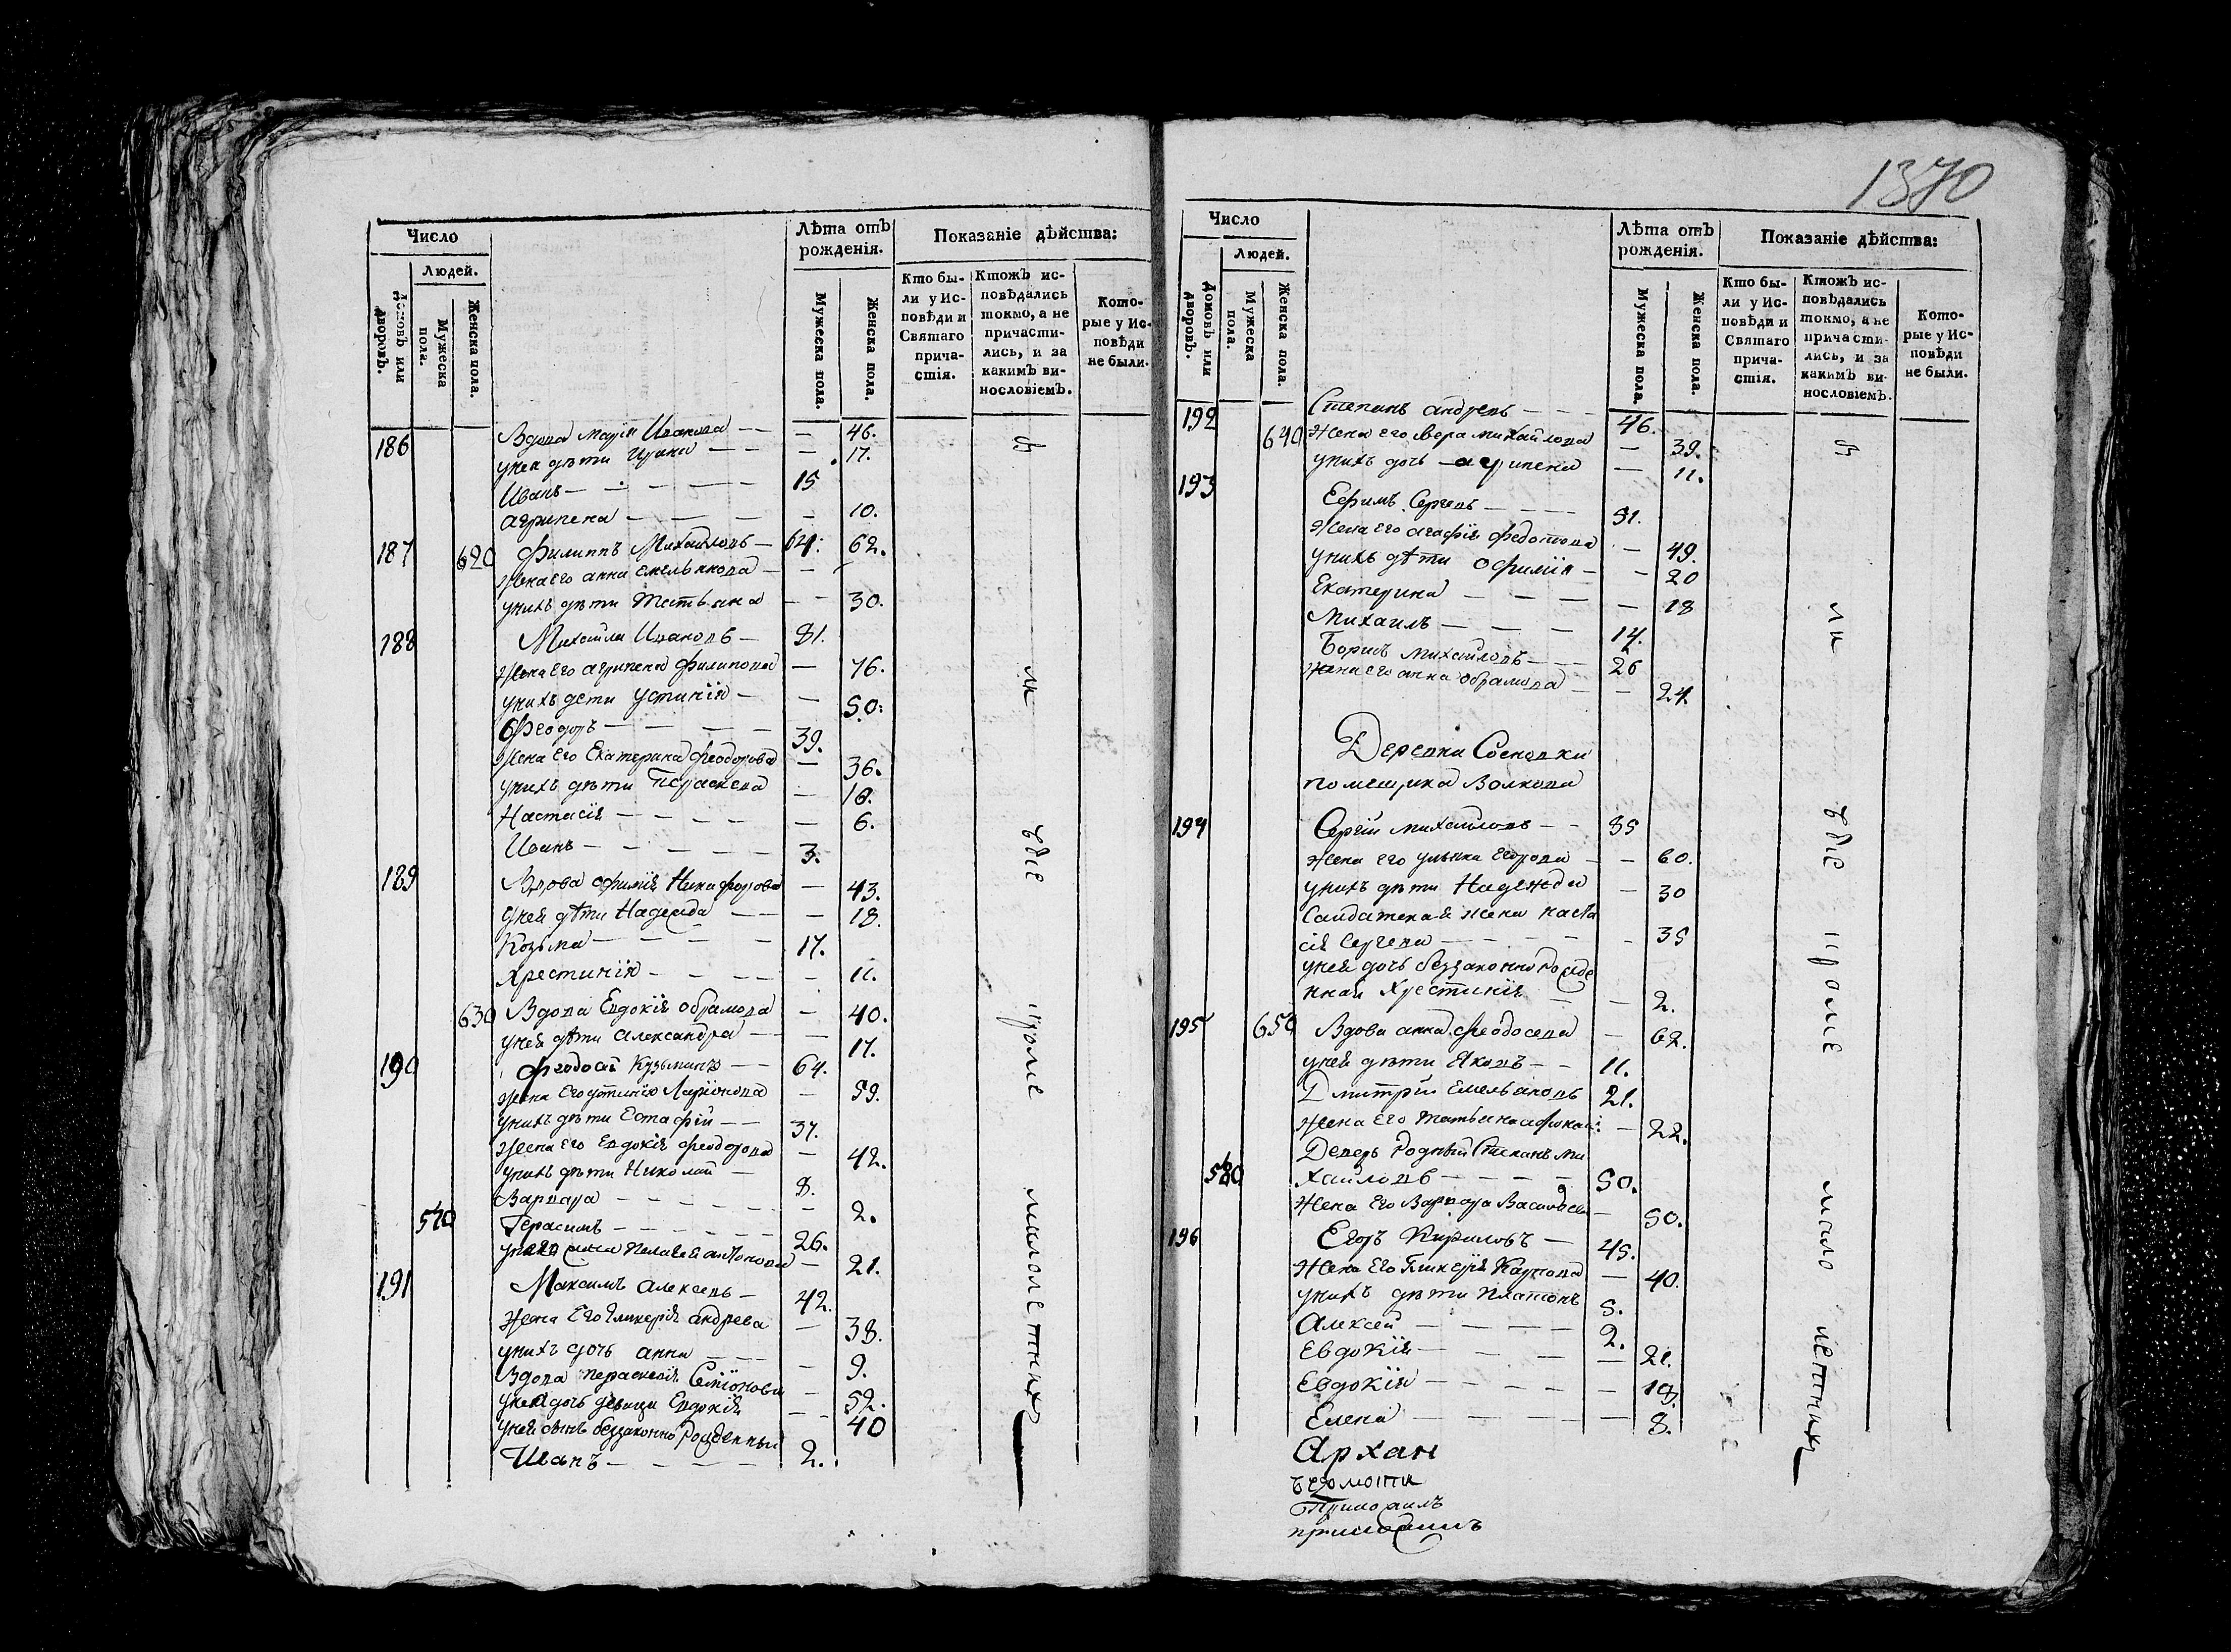 1370
Число
Людей.
Домовъ или дворовъ.
Мужеска пола.
Женска пола.
Лѣта отъ рожденія.
Мужеска пола.
Женска пола.
Показаніе дѣйства:
Кто бы-
ли у Ис-
повѣди и
Святаго
прича-
стія.
Ктожъ ис-
повѣдались
токмо, а не
причасти-
лись, и за
какимъ ви-
нословіемъ.
Кото-
рые у Ис-
повѣди
не были.
186 Вдова Марія Иванова — — 46.
унея дѣти Ирина — — — 17.
Иванъ — — — — 15
Агрипена — — — — 10.
187 620 Филиппъ Михайловъ — 64. 62.
жена его анна емельянова — —
унихъ дѣти Татьяна — — 30.
188 Михайла Ивановъ — 81.
Жена его агрипена филипова — 76.
унихъ дети Устинія — — 50.
Феодоръ — — — — 39.
Жена его Екатерина феодорова — 36.
унихъ дѣти Параскева — 10.
Настасія — — — — — 6.
Иванъ — — — — — 3.
189 Вдова офимія Никифорова — 43.
унея дѣти Надежда — — — 18.
Козьма — — — — 17.
Хрестинія — — — — — 11.
630 Вдова Евдокія обрамова — 40.
унея дѣти Александра — — — 17.
190 Феодосій Кузьминъ — — 64.
жена его устинія Ларіонова — 59.
унихъ дѣти Естафій — — 37.
жена его Евдокія феодорова — 42.
унихъ дѣти Николай — 8.
Варвара — — — — — — 2.
570 Герасимъ — — — — — 26.
Пелагея антонова — 21.
191 Максимъ Алексеевъ — 42.
жена его Гликерія андреева — 38.
унихъ дочь анна — — — — 9.
Вдова параскевія Семіонова — 52.
унея дочь девица Евдокія — — 40
унея сынъ беззаконно рожденный
Иванъ — — — — 2.
въ
ли
все
кроме
малолетнихъ
Число
Людей.
Домовъ или дворовъ.
Мужеска пола.
Женска пола.
Лѣта отъ рожденія.
Мужеска пола.
Женска пола.
Показаніе дѣйства:
Кто бы-
ли у Ис-
повѣди и
Святаго
прича-
стія.
Ктожъ ис-
повѣдались
токмо, а не
причасти-
лись, и за
какимъ ви-
нословіемъ.
Кото-
рые у Ис-
повѣди
не были.
192 Степанъ андреевъ — — — 46.
640 Жена его вера михайлова — 39.
унихъ дочь — агрипена — 11.
193 Ефимъ Сергеевъ — — — — 51.
Жена его агафія федотова — 49.
унихъ дѣти офимія — — 20
Екатерина — — — — 18
Михаилъ — — — 14.
Борисъ михайловъ — — — 26
Жена его анна обрамова — — 24
Деревни Сосновки
помещика Волкова
194 Сергій михайловъ — — 85
Жена его ульяна Егорова — — 60.
унихъ дѣти Надежда — 30
Салдатская жена наста
сія Сергеева — — — — — 35
унея дочь беззаконно рожде
нная Хрестинія — — 2.
195 650 Вдова анна феодосеева — 62.
унея дѣти Яковъ — — 11.
Дмитрій Емельяновъ 21.
жена его Татьяна — 22.
Деверь родный Степанъ ми
580 хайловъ — — — — 50.
Жена его Варвара Васильева — 50.
196 Егоръ Кириловъ — 45.
Жена его Гликерія Карпова — 40.
унихъ дѣти Платонъ 5.
Алексей — — — — 2.
Евдокія — — — — — 21.
Евдокія — — — — — 18.
Елена — — — — — 8.
Архан
въ
ли
все
кроме
мало летнихъ